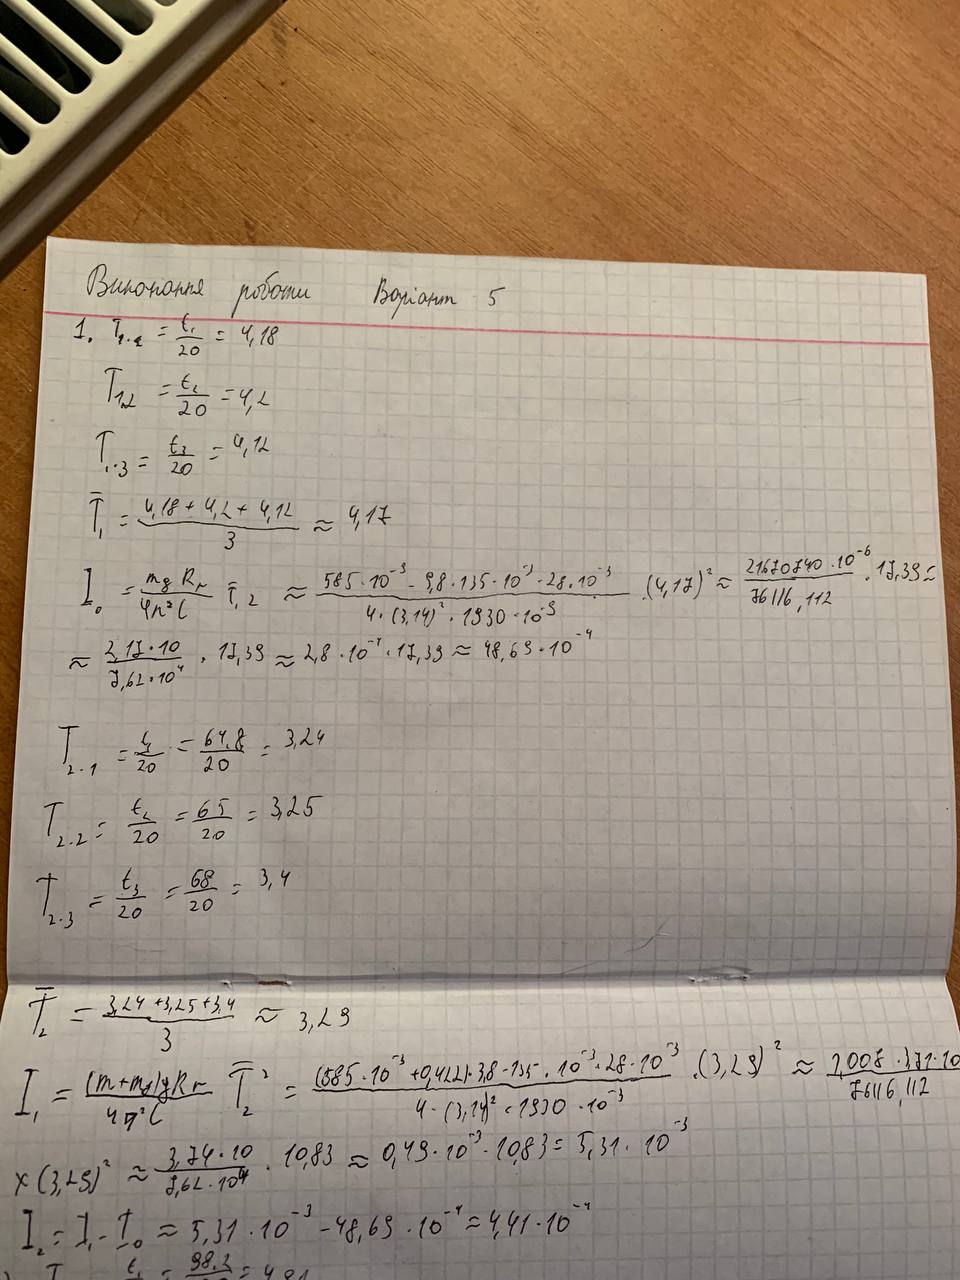 Виконання роботи Варіант 5
1. T₁.₁ = t₁/20 = 4,18
T₁.₂ = t₂/20 = 4,2
T₁.₃ = t₃/20 = 4,12
T̄₁ = (4,18 + 4,2 + 4,12)/3 ≈ 4,17
I₀ = (mgRr)/(4π²l) T̄₁,² ≈ (585·10⁻³ · 9,8·135·10⁻³ · 28·10⁻³)/(4·(3,14)²·1930·10⁻³) · (4,17)² ≈ (21670740·10⁻⁶)/(76116,112) · 17,39 ≈
≈ (2,17·10)/(7,62·10⁴) · 17,39 ≈ 2,8·10⁻⁴ · 17,39 ≈ 48,69·10⁻⁴
T₂.₁ = t₁/20 = 64,8/20 = 3,24
T₂.₂ = t₂/20 = 65/20 = 3,25
T₂.₃ = t₃/20 = 68/20 = 3,4
T̄₂ = (3,24 + 3,25 + 3,4)/3 ≈ 3,29
I₁ = ((m+m₁)gRr)/(4π²l) T̄₂² = ((585·10⁻³ + 0,422)·9,8·135·10⁻³·28·10⁻³)/(4·(3,14)²·1930·10⁻³) · (3,29)² ≈ /(76116,112)
× (3,29)² ≈ (3,74·10)/(7,62·10⁴) · 10,83 ≈ 0,49·10⁻³ · 10,83 = 5,31·10⁻³
I₂ = I₁ - I₀ ≈ 5,31·10⁻³ - 48,69·10⁻⁴ = 4,41·10⁻⁴
t₁ = 98.2 =